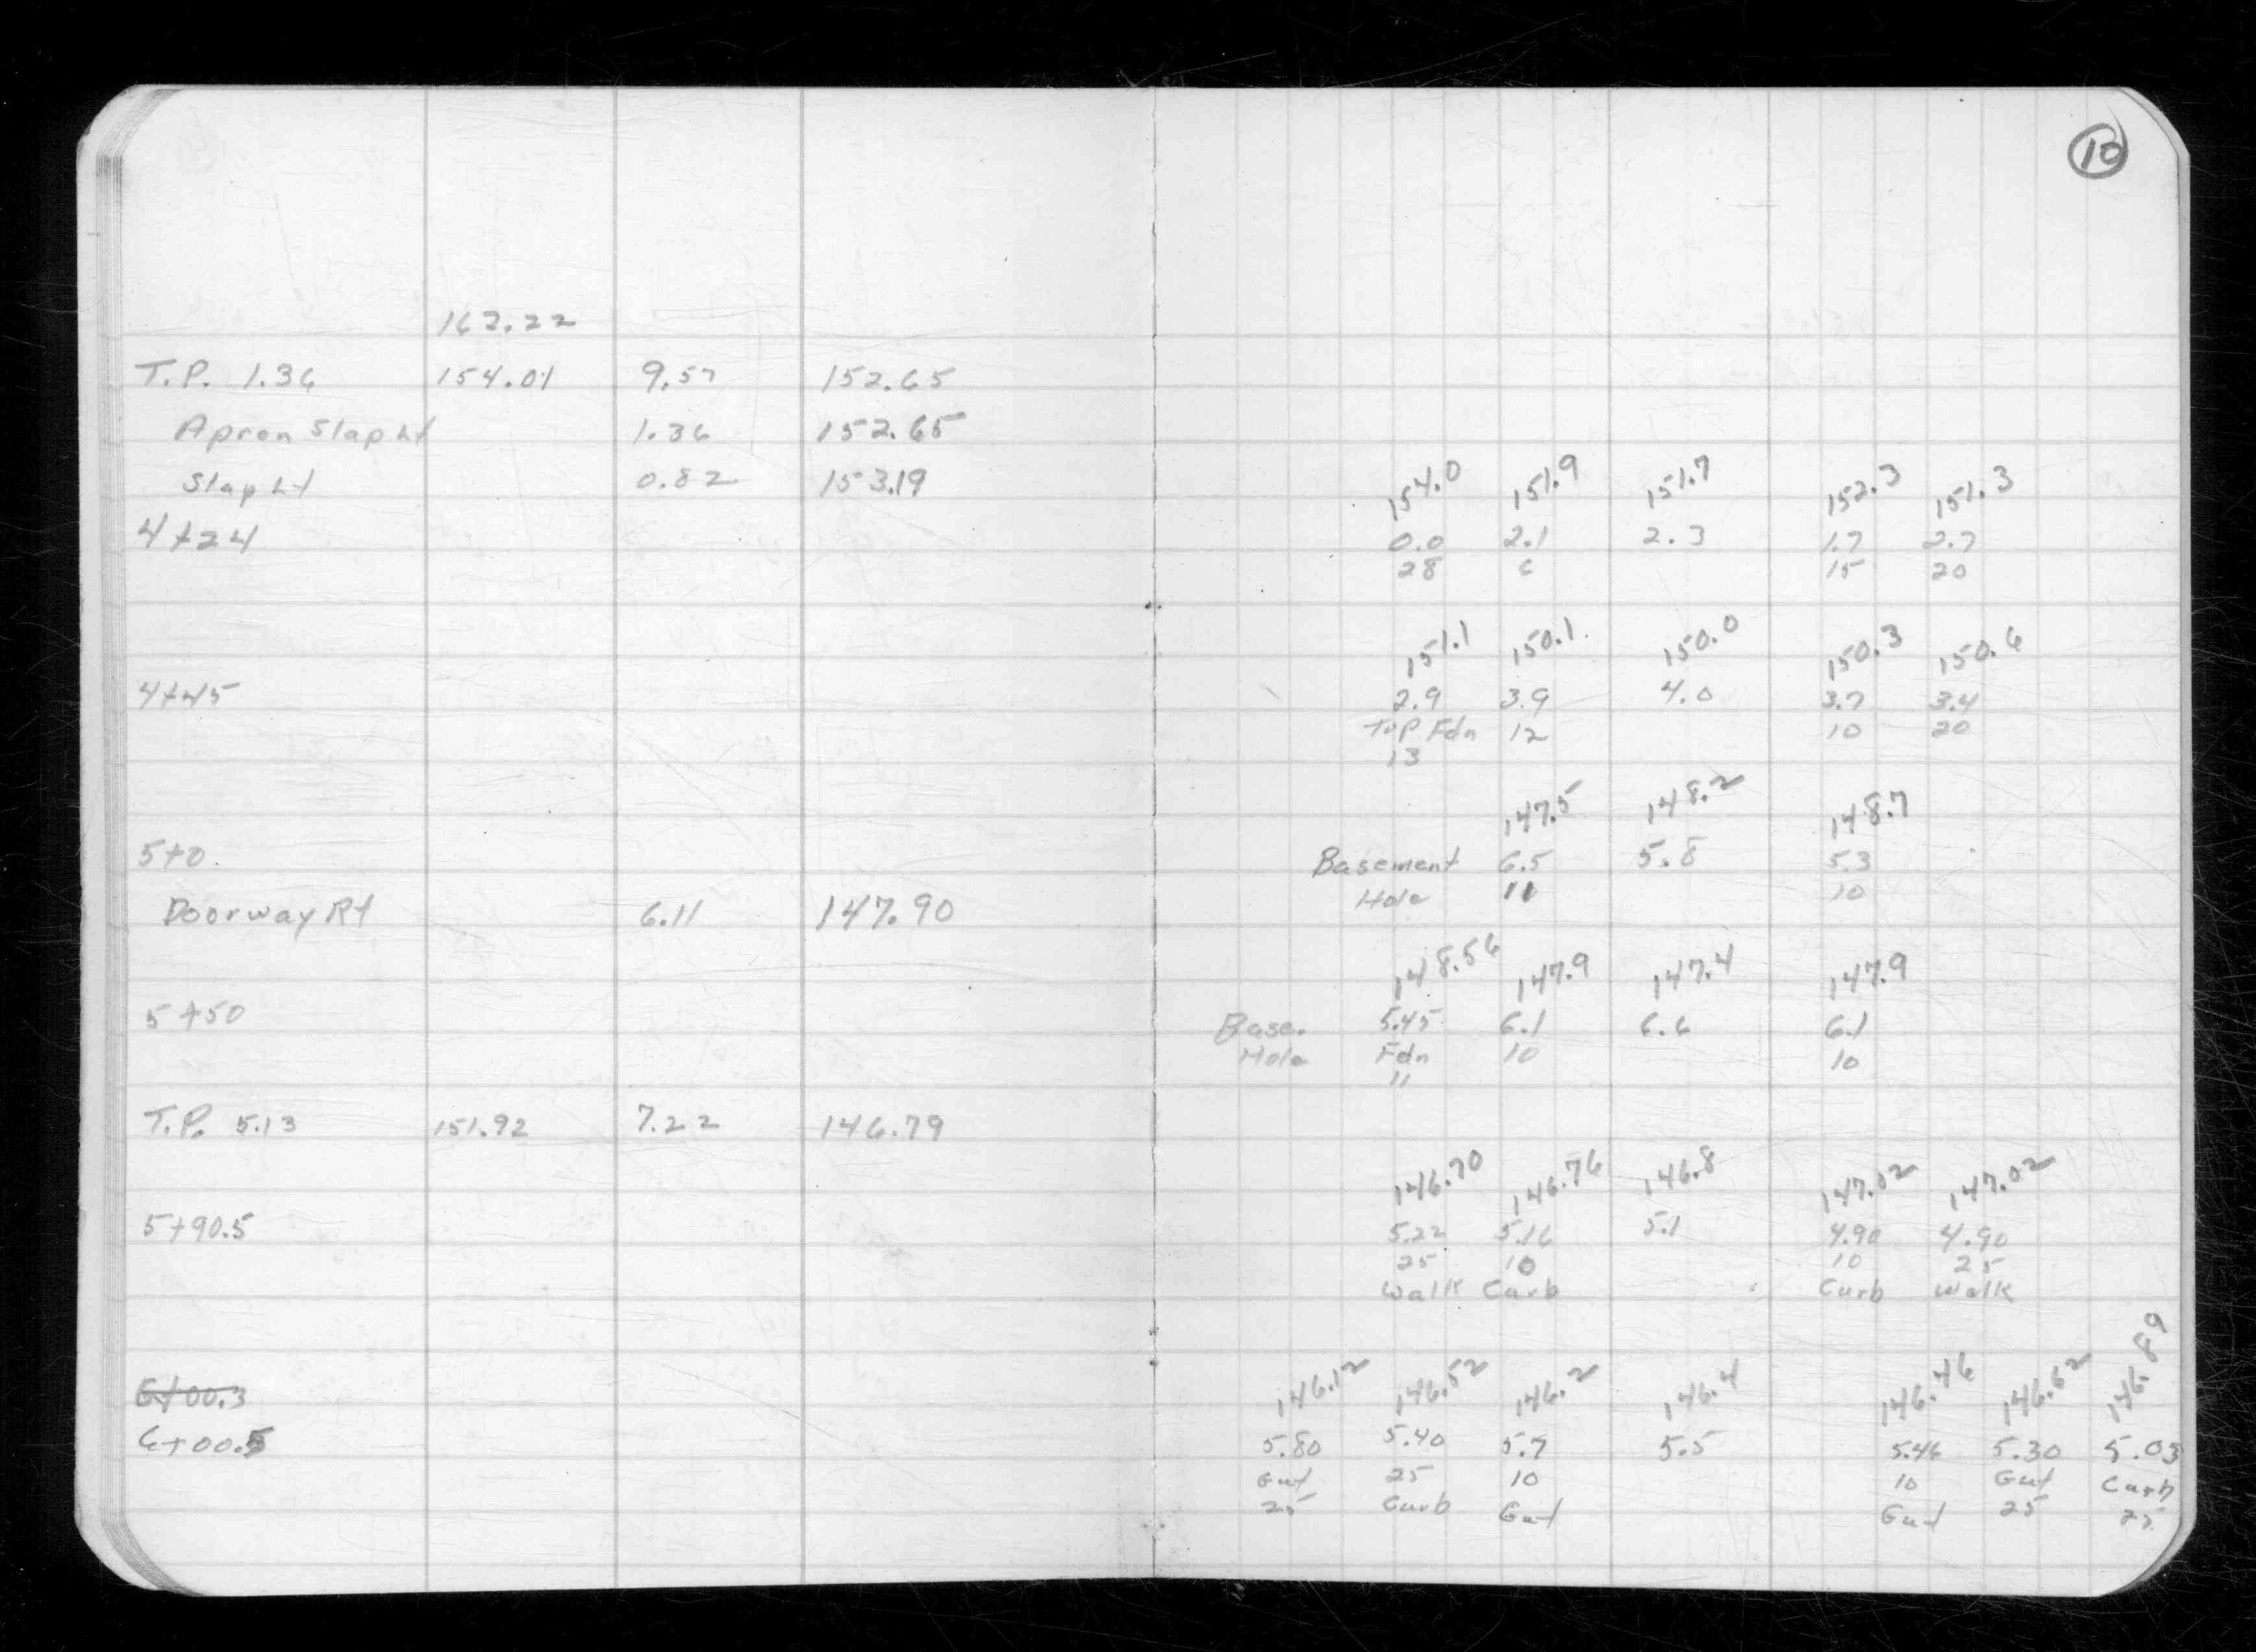 10
162.22
T.P. 1.36 154.01 9.57 152.65
Apron Slap Lt 1.36 152.65
Slap Lt 0.82 153.19
154.0 151.9 151.7 152.3 151.3
4+24 0.0 2.1 2.3 1.7 2.7
28 6 15 20
151.1 150.1 150.0 150.3 150.6
4+45 2.9 3.9 4.0 3.7 3.4
Top Fdn 12 10 20
13
147.5 148.2 148.7
5+0 Basement 6.5 5.8 5.3
Hole 11 10
Doorway Rt 6.11 147.90
148.56 147.9 147.4 147.9
5+50 Base. 5.45 6.1 6.6 6.1
Hole Fdn 10 10
11
T.P. 5.13 151.92 7.22 146.79
146.70 146.76 146.8 147.02 147.02
5+90.5 5.22 5.16 5.1 4.90 4.90
25 10 10 25
Walk Curb Curb Walk
146.12 146.52 146.2 146.4 146.46 146.62 146.89
6+00.3
6+00.5 5.80 5.40 5.7 5.5 5.46 5.30 5.03
Gut 25 10 10 Gut Curb
25 Curb Gut Gut 25 25